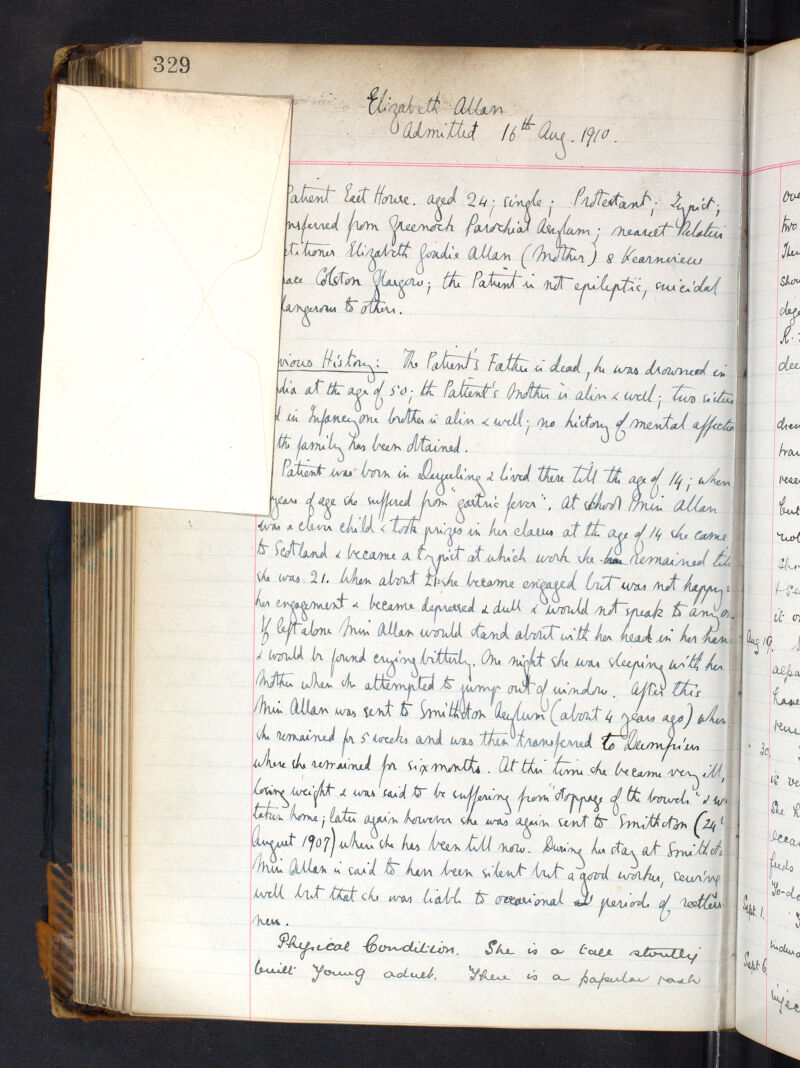 329
Elizabeth Allan
Admitted 16th Aug. 1910.
Patient East House. aged 24; single; Protestant; Typist;
nsferred from Greenock Parochial Asylum; nearest Relative
etitioner Elizabeth Goudie Allan (Mother) 8 Kearnview
race Colston Glasgow; the Patient is not epileptic, suicidal
dangerous to others.
vious History: The Patient's Father is dead, he was drowned in
dia at the age of 50; the Patient's Mother is alive & well; two sisters
d in Infancy one brother is alive & well; no history of mental affection
the family has been obtained.
Patient was born in Darjeeling & lived there till the age of 14; when
years of age she suffered from "gastric fever". At school Miss Allan
was a clever child & took prizes in her classes at the age of 14 she came
to Scotland & became a typist at which work she remained till
she was 21. When about 21 she became engaged but was not happy in
her engagement & became depressed & dull & would not speak to any on
If left alone Miss Allan would stand about with her head in her han
& would be found crying bitterly. One night she was sleeping with her
Mother when she attempted to jump out of window. After this
Miss Allan was sent to Smithston Asylum (about 4 years ago) when
she remained for 5 weeks and was then transferred to
where she remained for six months. At this time she became very ill,
losing weight & was said to be suffering from "stoppage of the bowels" & w
taken home; later again however she was again sent to Smithston (24
August 1907) where she has been till now. During her stay at Smithsto
Miss Allan is said to have been silent but a good worker, sewing
well but that she was liable to occasional periods of restless
ness.
Physical Condition. She is a tall stoutly
built young adult. There is a papular rash
ove
two
Ther
shou
dege
R.
dee
drea
tra
rece
but
not
She
it o
Aug 19.
appa
have
30
is ve
She h
occa
feeds
To-da
Sept 1.
Sept 6
injec